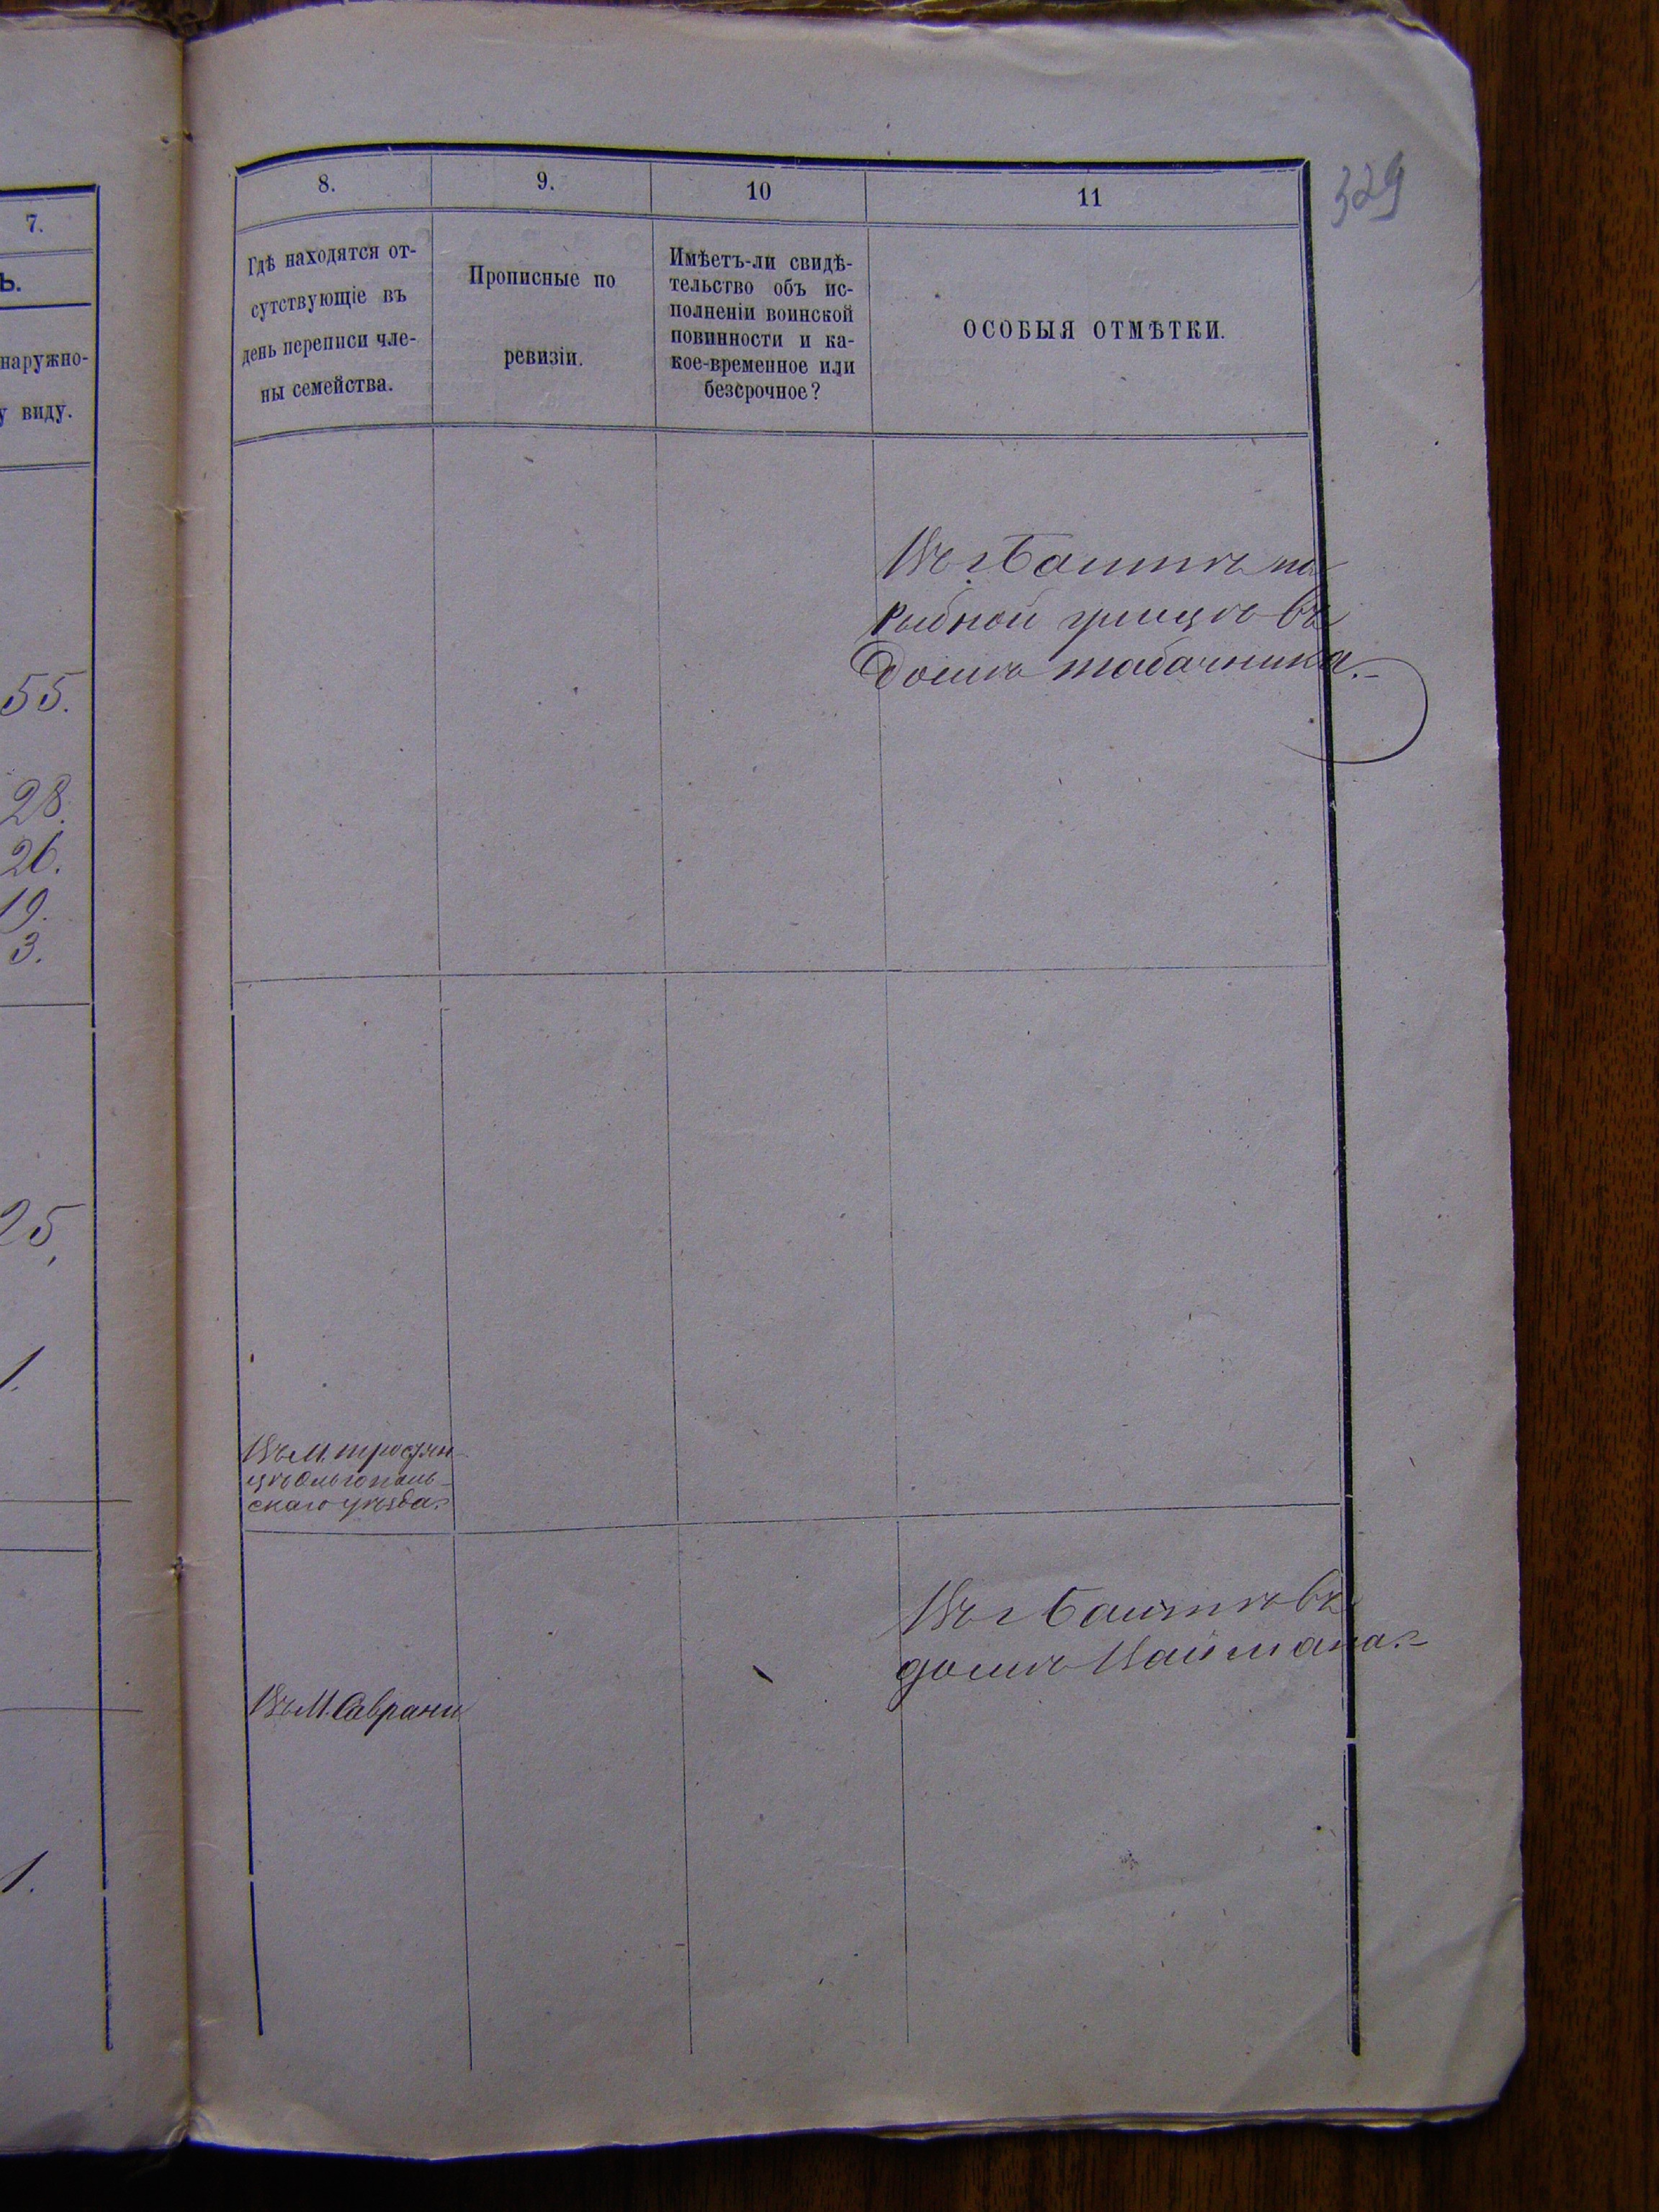 7.
Ь.
наружно-
у виду.
55.
28.
26.
19.
3.
25.
1.
1.
329
8.
9.
10
11
Гдѣ находятся от-
сутствующіе въ
день переписи чле-
ны семейства.
Прописные по
ревизіи.
Имѣетъ-ли свидѣ-
тельство объ ис-
полненіи воинской
повинности и ка-
кое-временное или
безсрочное?
ОСОБЫЯ ОТМѢТКИ.
Въ г Балтѣ на
Рыбной улицѣ въ
домѣ Табачника.-
Въ М. Тростян-
цѣ Ольгополь-
скаго уѣзда.
Въ г Балтѣ въ
домѣ Наймана.-
Въ М. Саврани